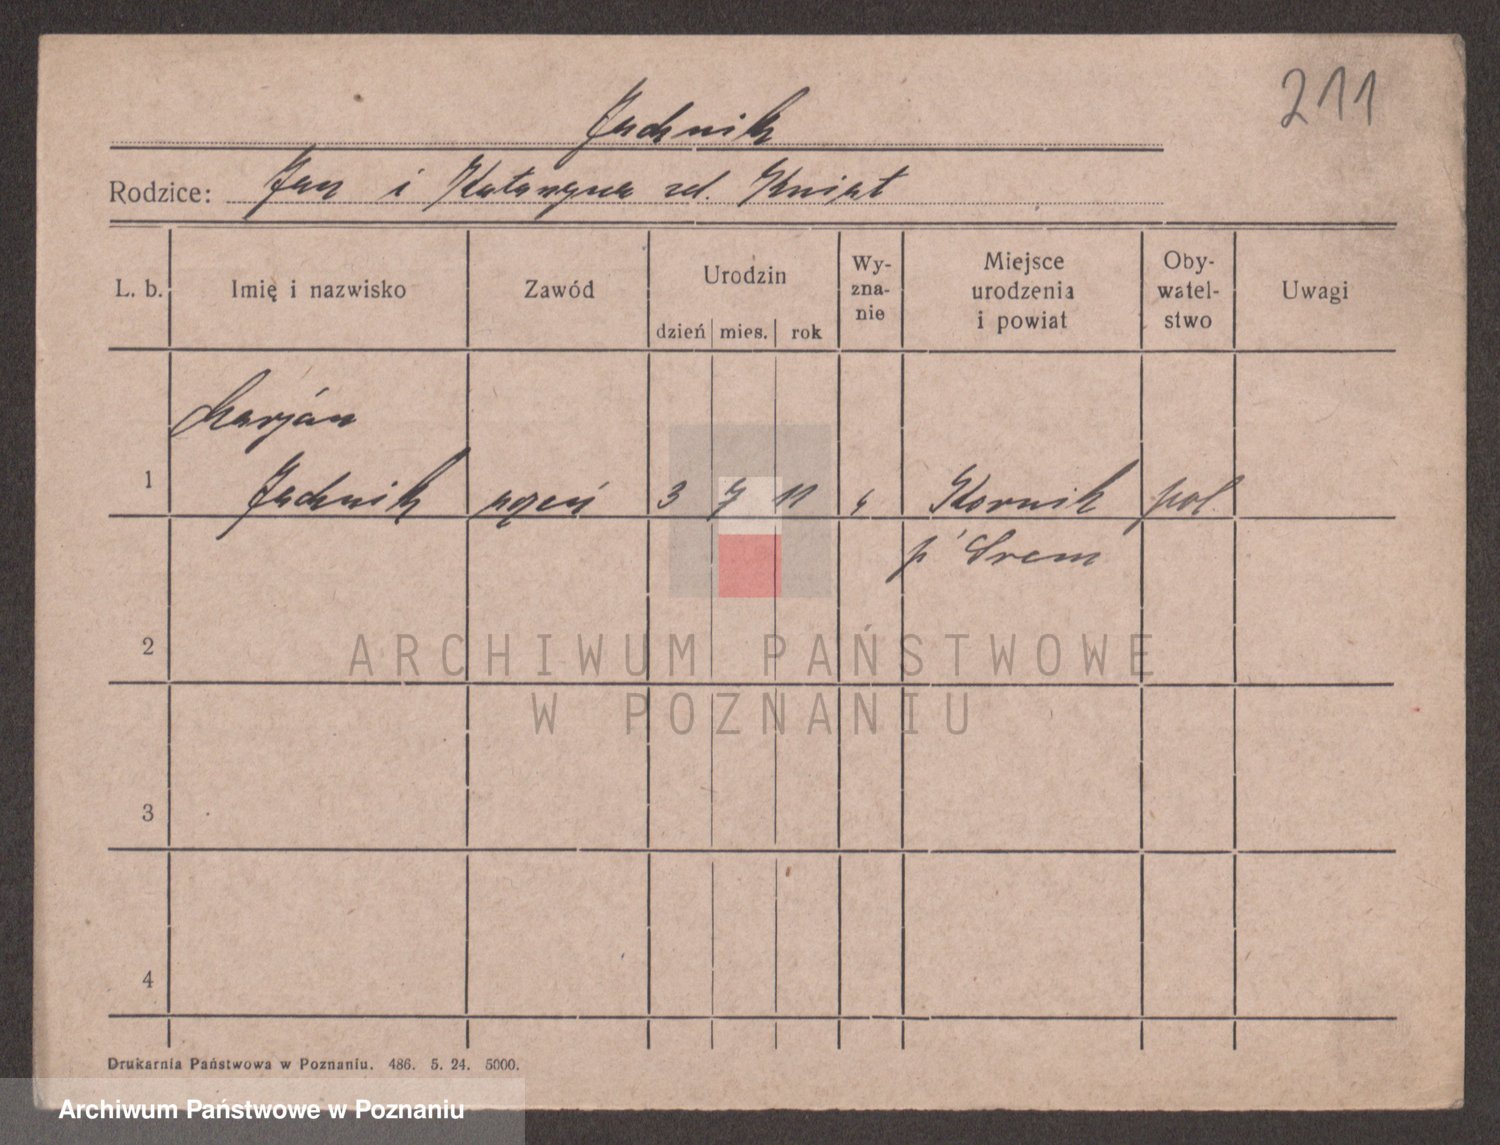 211
Jachnik
Rodzice: Jan i Katarzyna zd. Kniat
L. b. Imię i nazwisko Zawód Urodzin dzień mies. rok Wy-zna-nie Miejsce urodzenia i powiat Oby-watel-stwo Uwagi
Marjan
1 Jachnik uczeń 3 7 11 Kornik pol.
p. Srem
2
3
4
ARCHIWUM PAŃSTWOWE
W POZNANIU
Drukarnia Państwowa w Poznaniu. 486. 5. 24. 5000.
Archiwum Państwowe w Poznaniu